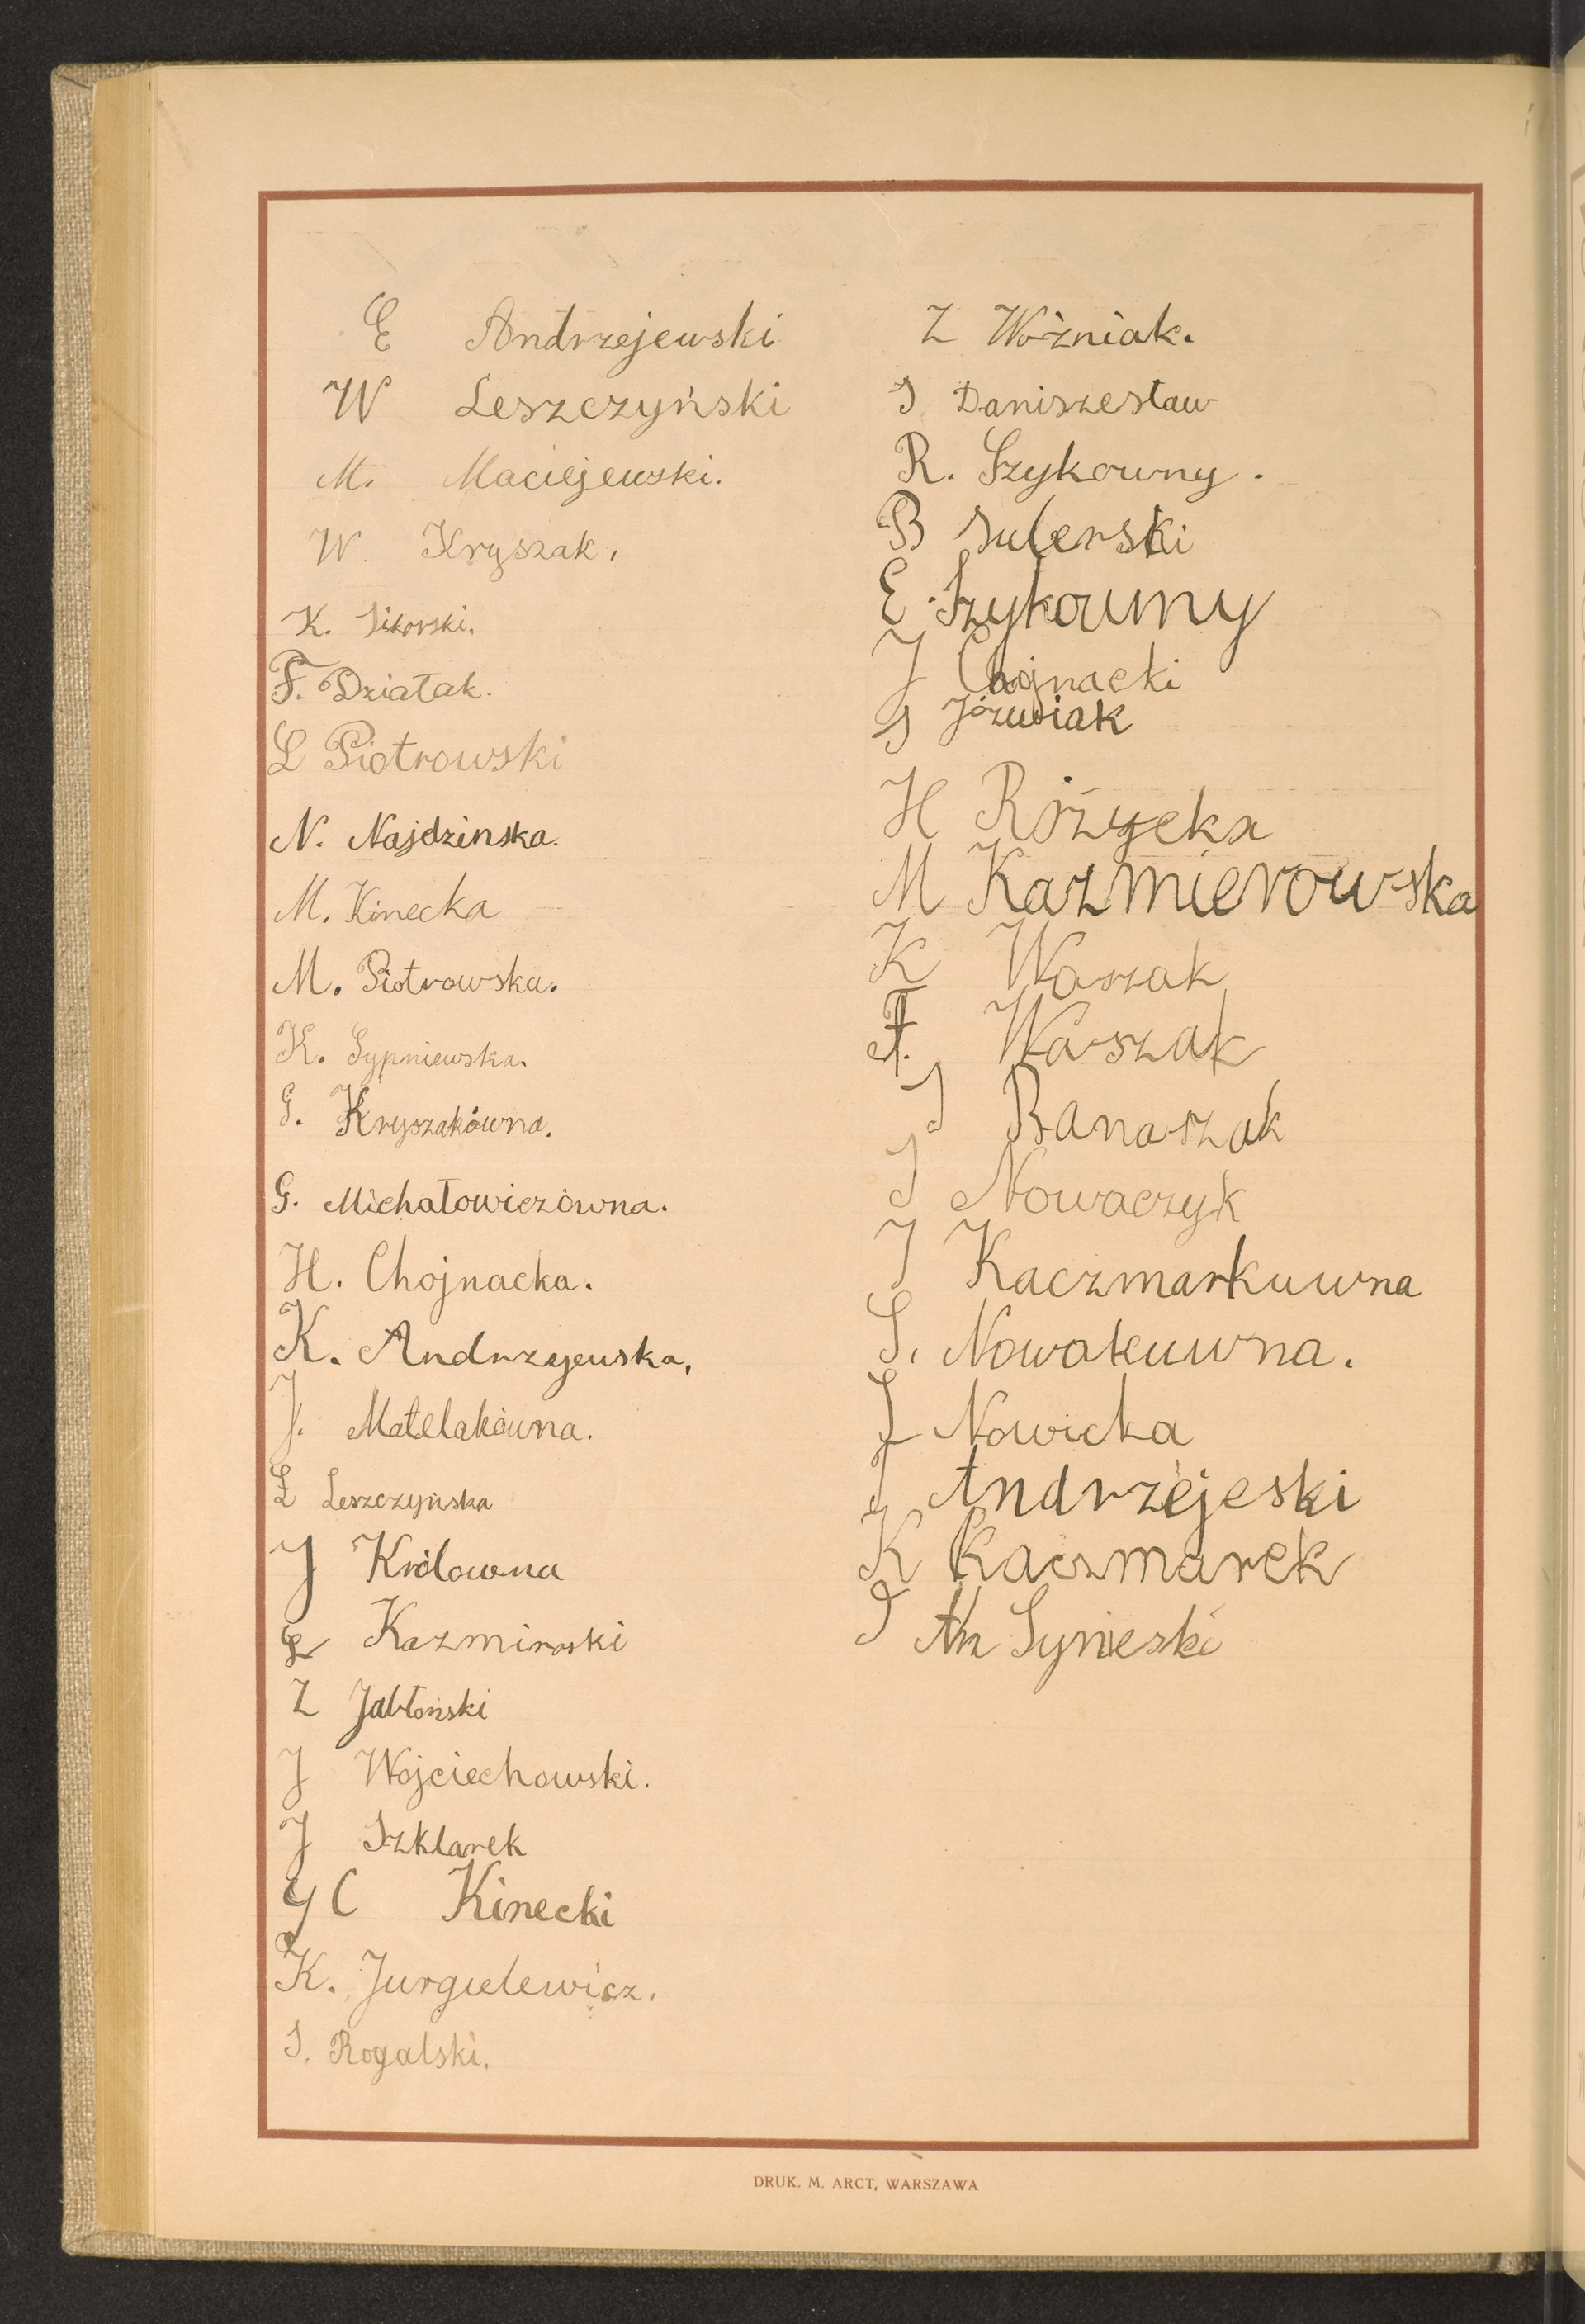 E Andrzejewski
W Leszczyński
M. Maciejewski.
W. Kryszak.
K. Sikorski.
F. Działak.
L Piotrowski
N. Najdzinska.
M. Kinecka
M. Piotrowska.
K. Sypniewska.
G. Kryszakówna.
G. Michałowiczówna.
H. Chojnacka.
K. Andrzyewska,
J. Matelakówna.
Ł Leszczyńska
J Królowna
L Kazmiroski
Z Jabłoński
J Wojciechowski.
J Szklarek
C Kinecki
K. Jurgielewicz.
S. Rogalski.
Z Woźniak.
S Daniszesław
R. Szykowny.
B Sulerski
E. Szykowny
J Chojnacki
S Jóźwiak
H Różycka
M Kazmierowska
K Waszak
F. Waszak
J Banaszak
J Nowaczyk
J Kaczmarkuwna
S. Nowakuwna.
J Nowicka
J Andrzejeski
K Kaczmarek
S Synieski
DRUK. M. ARCT, WARSZAWA